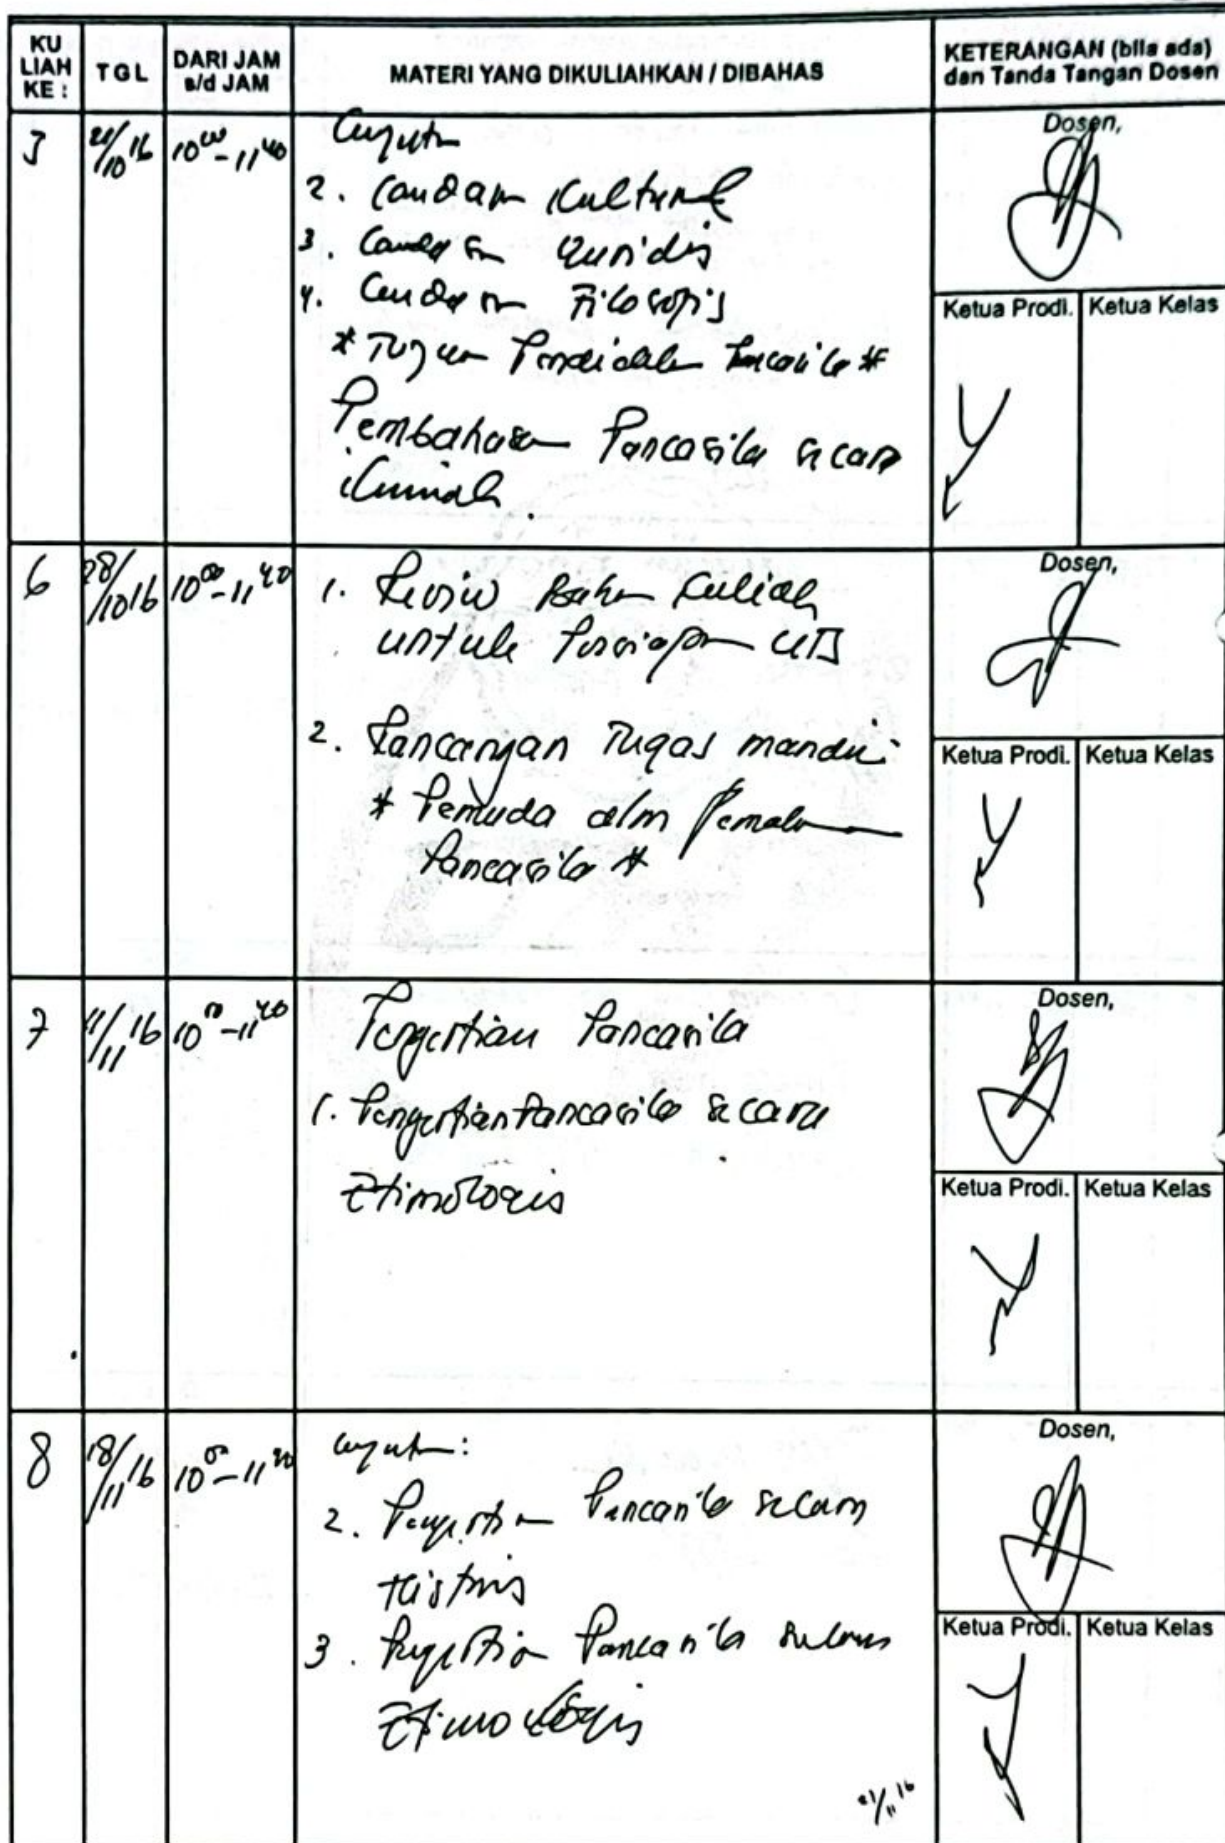 KU LIAH KE :
TGL
DARI JAM s/d JAM
MATERI YANG DIKULIAHKAN / DIBAHAS
KETERANGAN (bila ada) dan Tanda Tangan Dosen
21/10 16
10 00 - 11 40
Lanjutan
2. Landasan Kultural
3. Landasan Yuridis
4. Landasan Filosofis
* Tujuan Pendidikan Pancasila *
Pembahasan Pancasila secara
ilmiah.
Dosen,
Ketua Prodi. Ketua Kelas
6
28/10 16
10 00 - 11 40
1. Reviu Bahan Kuliah
untuk Persiapan UTS
2. Rancangan Tugas mandiri:
* Pemuda dlm
Pancasila *
Dosen,
Ketua Prodi. Ketua Kelas
7
11/11 16
10 00 - 11 40
Pengertian Pancasila
1. Pengertian Pancasila secara
Etimologis
Dosen,
Ketua Prodi. Ketua Kelas
8
18/11 16
10 00 - 11 40
Lanjutan:
2. Pengertian Pancasila secara
Historis
3. Pengertian Pancasila secara
Etimologis
21/11 16
Dosen,
Ketua Prodi. Ketua Kelas